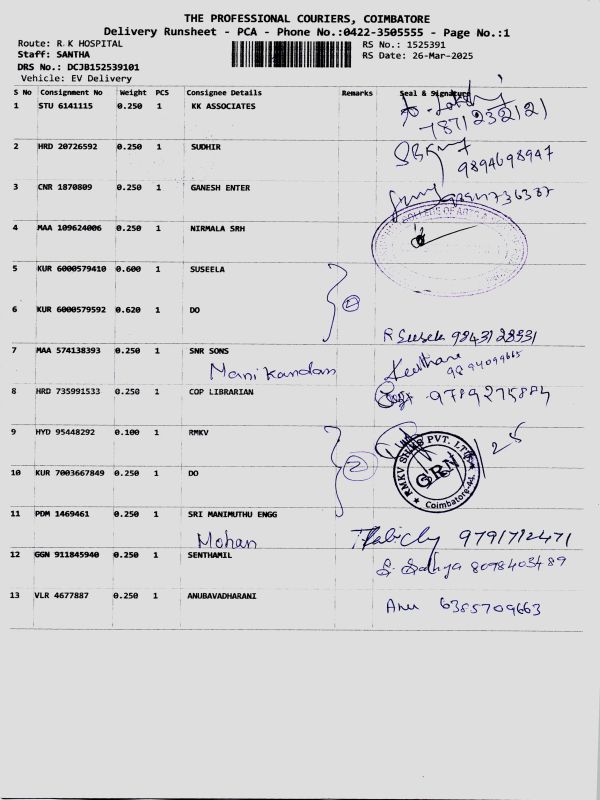 THE PROFESSIONAL COURIERS, COIMBATORE
Delivery Runsheet - PCA - Phone No.:0422-3505555 - Page No.:1
Route: R K HOSPITAL
RS No.: 1525391
Staff: SANTHA
RS Date: 26-Mar-2025
DRS No.: DCJB152539101
Vehicle: EV Delivery
S No Consignment No Weight PCS Consignee Details Remarks Seal & Signature
1 STU 6141115 0.250 1 KK ASSOCIATES
7871232121
2 HRD 20726592 0.250 1 SUDHIR
9894698947
3 CNR 1870809 0.250 1 GANESH ENTER
4 MAA 109624006 0.250 1 NIRMALA SRH
5 KUR 6000579410 0.600 1 SUSEELA
2
6 KUR 6000579592 0.620 1 DO
R Suseela 9843128331
7 MAA 574138393 0.250 1 SNR SONS
Manikandan
Keerthana 9894099665
8 HRD 735991533 0.250 1 COP LIBRARIAN 9789275884
9 HYD 95448292 0.100 1 RMKV
2
RMKV SILKS PVT. LTD.
GRN
Coimbatore-44.
10 KUR 7003667849 0.250 1 DO
11 PDM 1469461 0.250 1 SRI MANIMUTHU ENGG
Mohan 9791712471
12 GGN 911845940 0.250 1 SENTHAMIL
S. Sathya 8098403489
13 VLR 4677887 0.250 1 ANUBAVADHARANI
Anu 6385709663